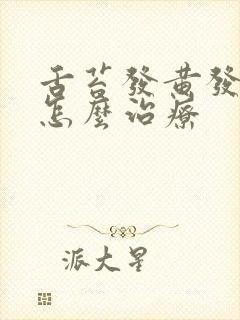 舌苔發黃發
怎麼治療
派大星